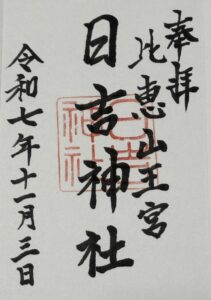 奉拝
比恵山王宮
日吉神社
日吉神社
令和七年十一月三日